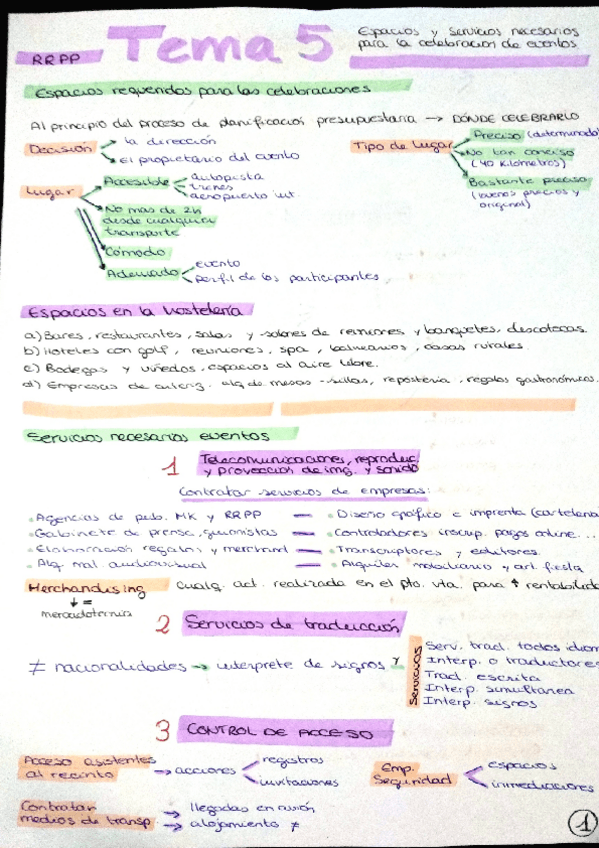 RRPP Tema 5 Espacios y servicios necesarios
para la celebracion de eventos
Espacios requeridos para las celebraciones
Al principio del proceso de planificación presupuestaria → DÓNDE CELEBRARLO
Decisión la dirección
el propietario del evento
Tipo de lugar Preciso (determinado)
No tan conciso
(40 kilómetros)
Bastante preciso
(buenos precios y
original)
Lugar Accesible autopista
trenes
aeropuerto int.
No mas de 2h
desde cualquier
transporte
Cómodo
Adecuado evento
perfil de los participantes
Espacios en la hostelería
a) Bares, restaurantes, salas y salones de reuniones y banquetes, discotecas.
b) Hoteles con golf, reuniones, spa, balnearios, casas rurales.
c) Bodegas y viñedos, espacios al aire libre.
d) Empresas de catering. alq de mesas - sillas, repostería, regalos gastronómicos.
Servicios necesarios eventos
1 Telecomunicaciones, reproduc.
y proyección de img. y sonido
Contratar servicios de empresas:
· Agencias de pub. MK y RRPP — · Diseño gráfico e imprenta (cartelería
· Gabinete de prensa, guionistas — · Controladores inscrip. pagos online...
· Elaboración regalos y merchand — · Transcriptores y editores.
· Alq. mat. audiovisual — · Alquiler mobiliario y art. fiesta
Merchandising cualq. act. realizada en el pto. vta. para ↑ rentabilidad
↓ =
mercadotecnia
2 Servicios de traducción
≠ nacionalidades → interprete de signos y
Servicios
Serv. trad. todos idiom
Interp. o traductores
Trad. escrita
Interp. simultanea
Interp. signos
3 CONTROL DE ACCESO
Acceso asistentes
al recinto → acciones registros
invitaciones
Emp.
Seguridad espacios
inmediaciones
Contratar
medios de transp. → llegadas en avión
→ alojamiento ≠
1